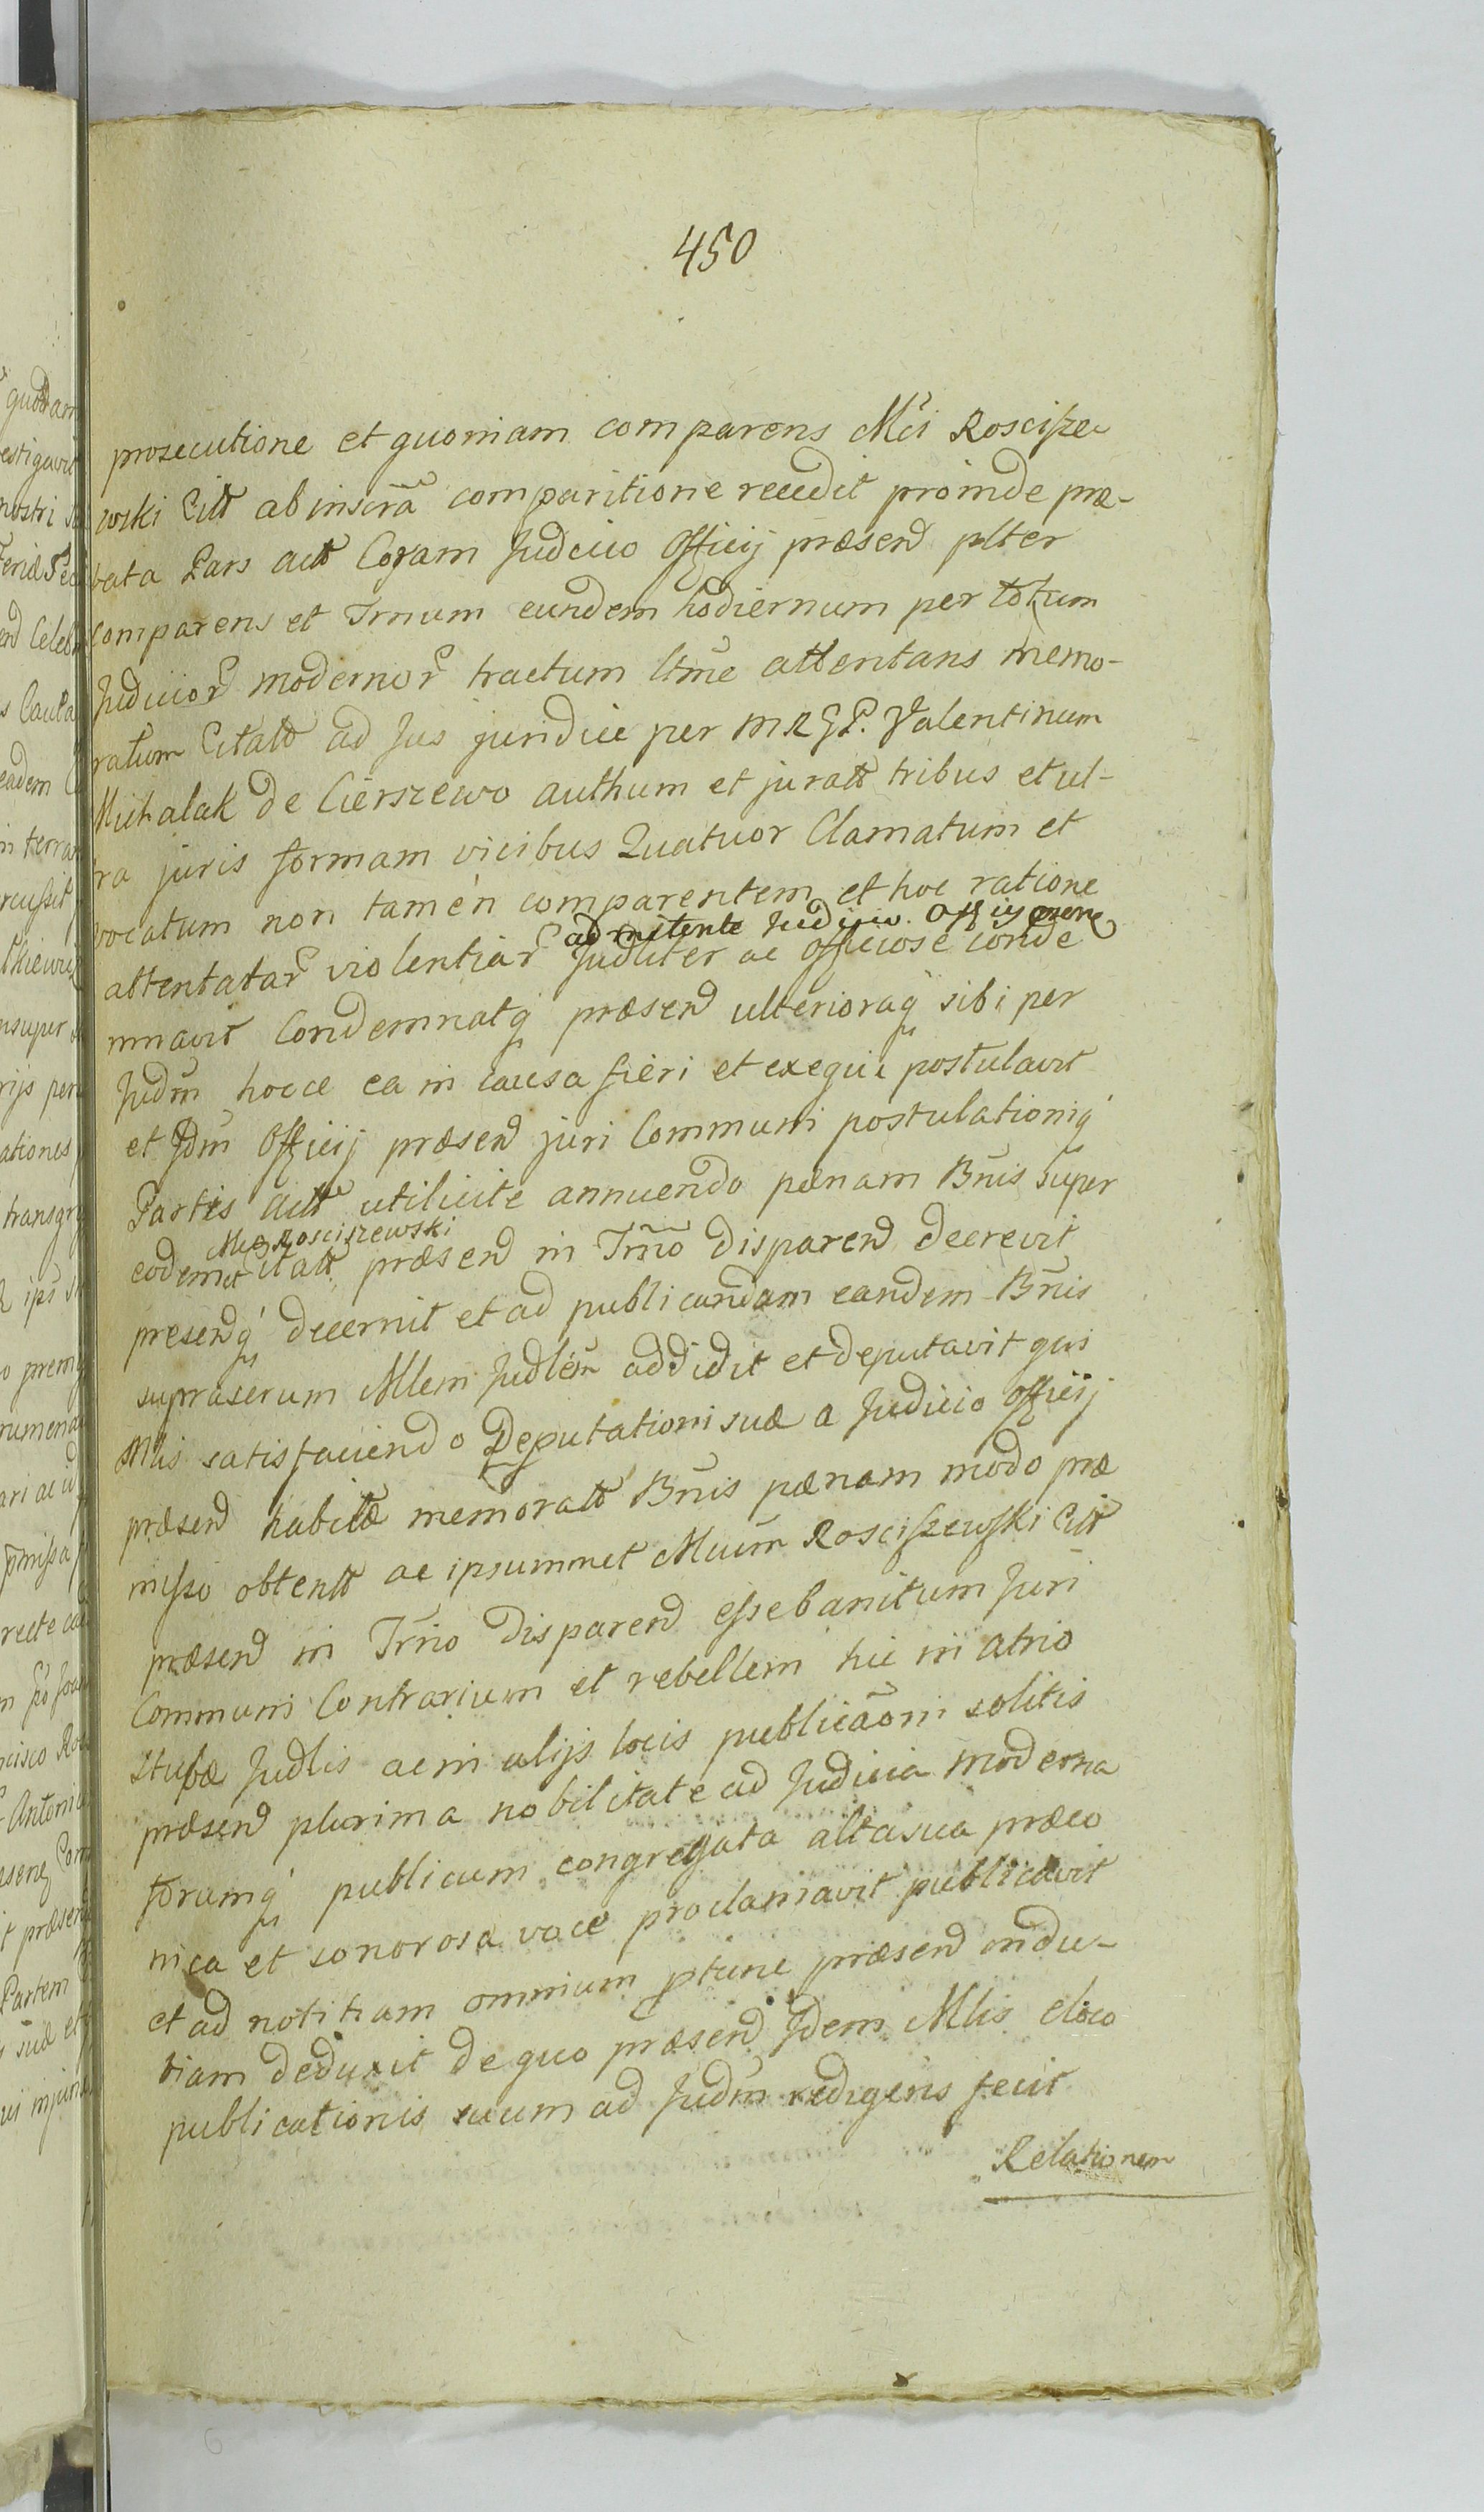 450
prosecutione et quoniam comparens Mci Roscisze
wski Citt ab inscrã comparitione recedit proinde præ-
bata Pars actt Coram Judicio Officij præsend plter
comparens et Trnum eundem hodiernum per totum
Judicior modernor tractum ltme attentans memo-
ratum Citatt ad Jus juridice per MRGP. Valentinum
Michalak de Cierszewo authum et juratt tribus et ul-
tra juris formam vicibus Quatuor Clamatum et
vocatum non tamen comparentem et hoc ratione
admitente Judicio Officij præse
attentatar violentiar Judliter ac officiose conde
mnavit Condemnatq præsend ulterioraq sibi per
Judm hocce ea in causa fieri et exequi postulavit
et Jdm Officij præsend juri Communi postulationiq
Partis actt utilicite annuendo pænam Bnis super
Mco Rosciszewski
eodemet Citatt præsend in Trño disparend decrevit
presendq decernit et ad publicandam eandem Bnis
supraserum Mlem Judlem addidit et deputavit qui
Mlis satisfaciendo Deputationi suæ a Judicio Officij
præsend habitæ memoratt Bnis pænam modo præ
misso obtentt ac ipsummet Mcum Rosciszewski Citt
præsend in Trño disparend esse banitum Juri
Communi Contrarium et rebellem hic in atrio
stubæ Judlis ac in alijs locis publicãoni solitis
præsend plurima nobilitate ad Judicia moderna
forumq publicum congregata alta sua præco
nica et sonorosa voce proclamavit publicavit
et ad notitiam omnium ptunc præsend indu-
biam deduxit de quo præsend Jdem Mlis eloco
publicationis suum ad Judm redigens fecit
Relationem